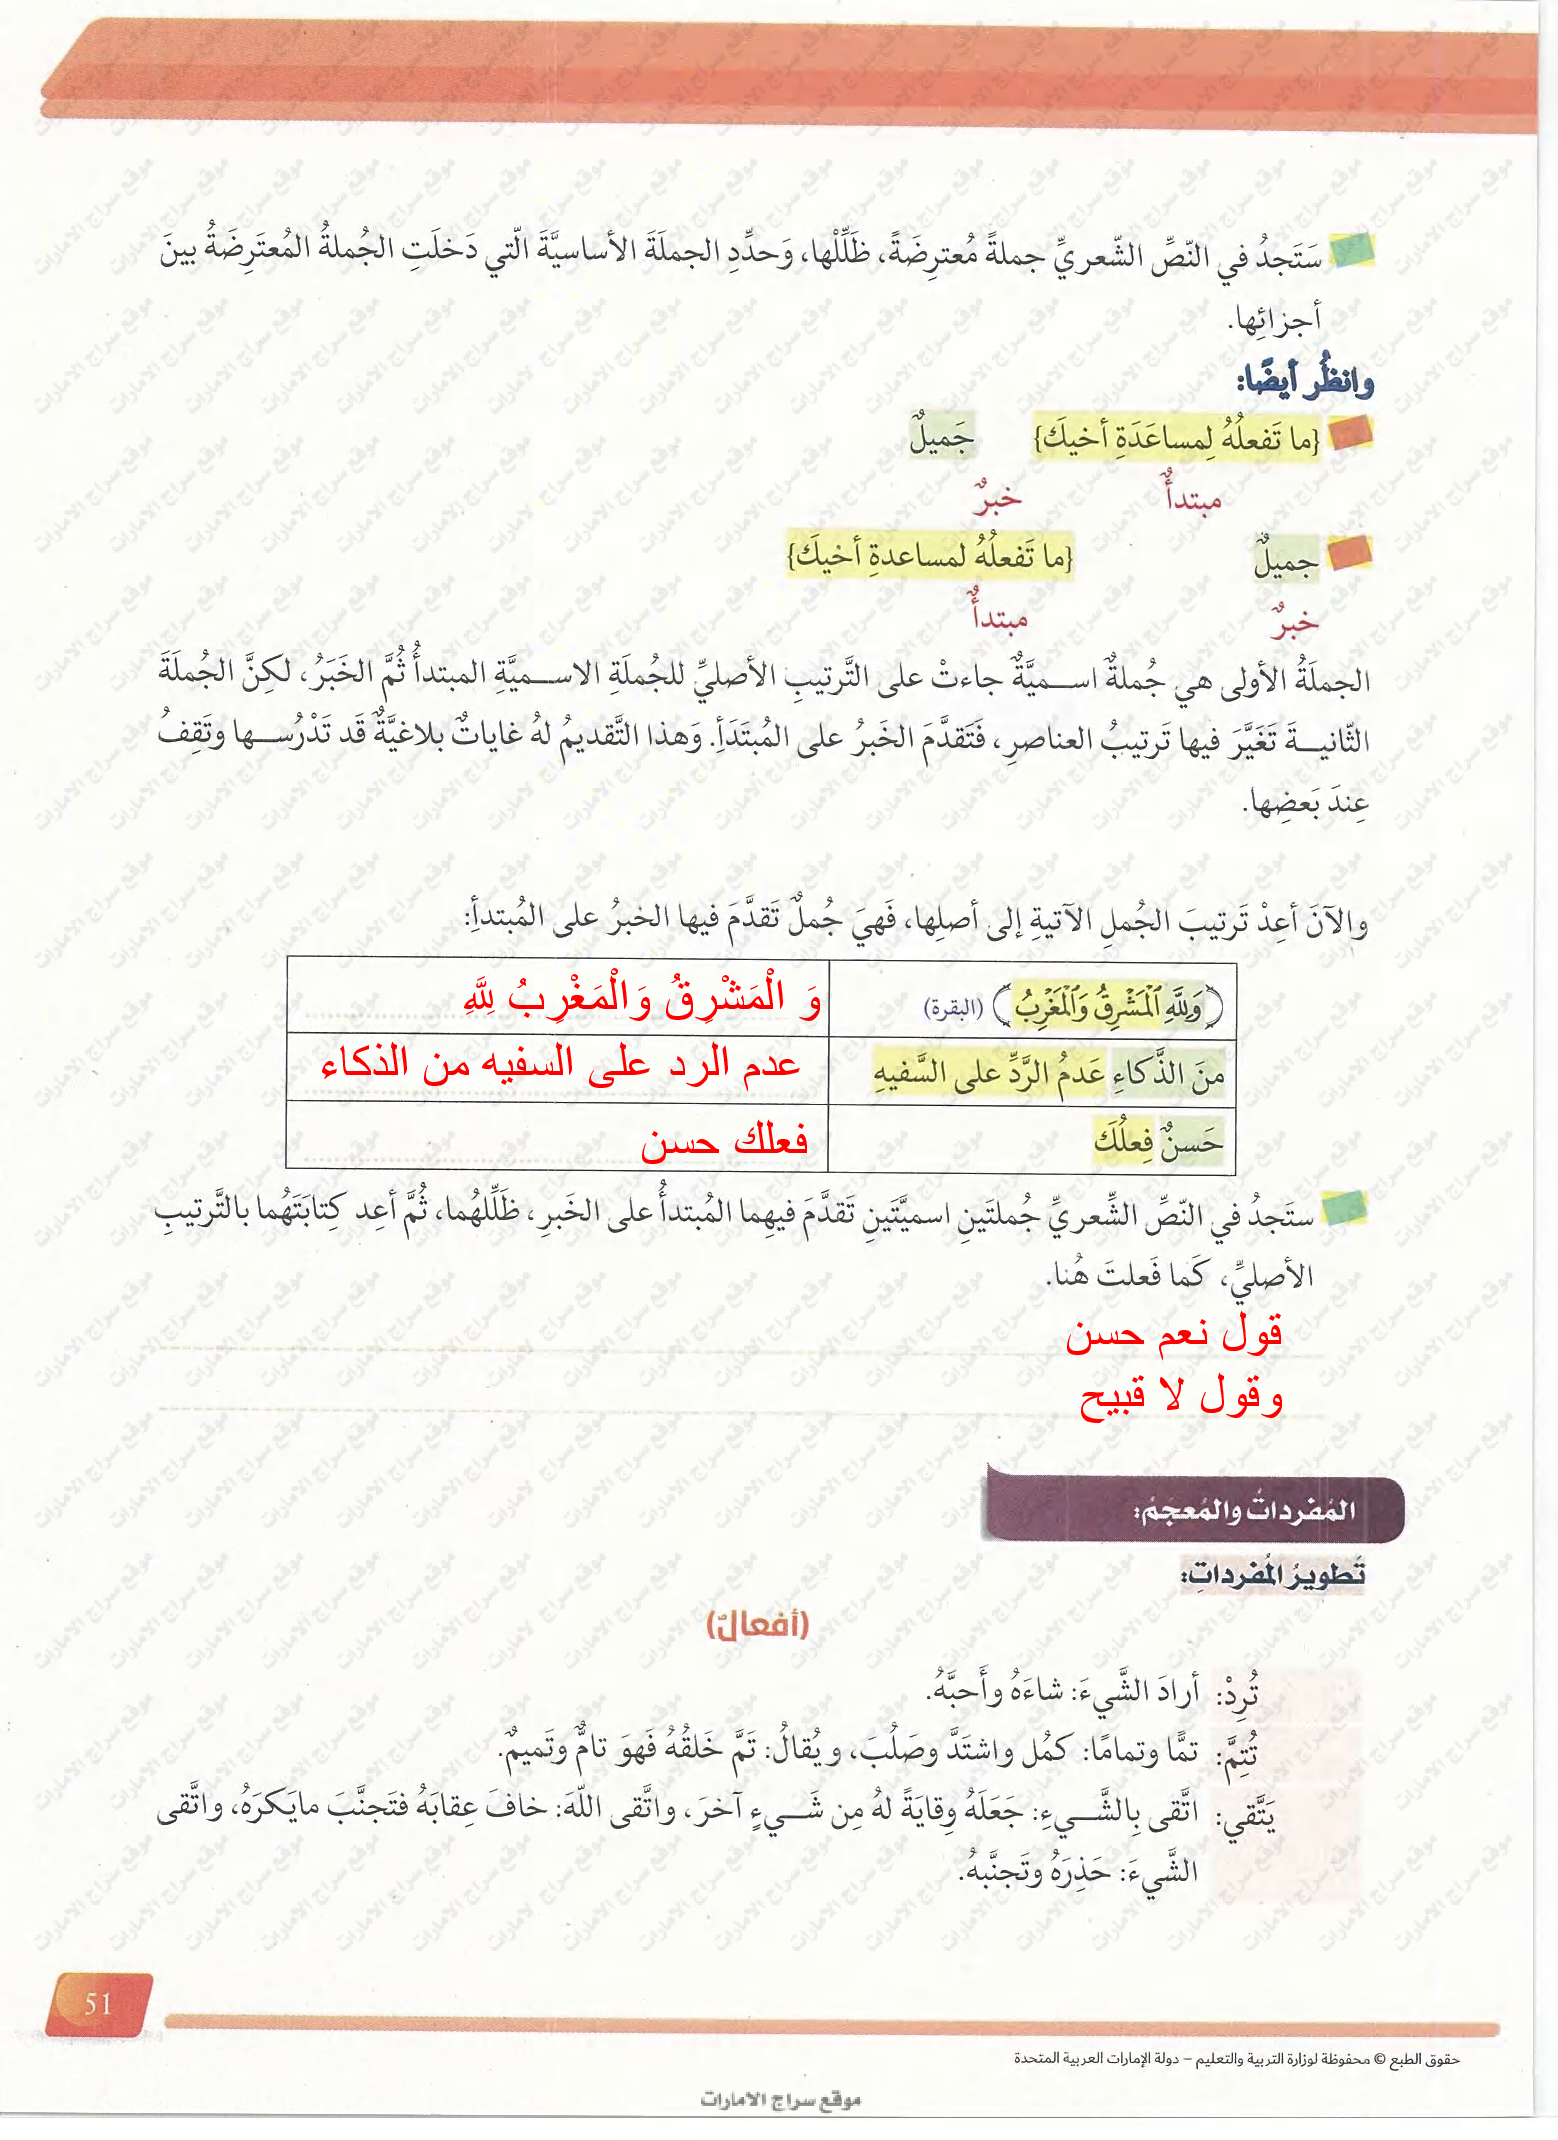 سَتَجدُ في النّصِّ الشّعريِّ جملةً مُعترِضَةً، ظَلِّلْها، وَحدِّدِ الجملَةَ الأساسيَّةَ الّتي دَخلَتِ الجُملةُ المُعتَرِضَةُ بينَ
أجزائِها.
وانظُر أيضًا:
{ما تَفعلُهُ لِمساعَدَةِ أخيكَ} جَميلٌ
مبتدأٌ خبرٌ
جميلٌ {ما تَفعلُهُ لمساعدةِ أخيكَ}
خبرٌ مبتدأٌ
الجملَةُ الأولى هي جُملةٌ اسميَّةٌ جاءتْ على التَّرتيبِ الأصليِّ للجُملَةِ الاسميَّةِ المبتدأُ ثُمَّ الخَبَرُ، لكِنَّ الجُملَةَ
الثّانيةَ تَغَيَّرَ فيها تَرتيبُ العناصرِ، فَتَقدَّمَ الخَبرُ على المُبتَدَأِ. وَهذا التَّقديمُ لهُ غاياتٌ بلاغيَّةٌ قَد تَدْرُسها وتَقِفُ
عِندَ بَعضِها.
والآنَ أعِدْ تَرتيبَ الجُملِ الآتيةِ إلى أصلِها، فَهيَ جُملٌ تَقدَّمَ فيها الخبرُ على المُبتدأِ:
﴿وَلِلَّهِ ٱلْمَشْرِقُ وَٱلْمَغْرِبُ﴾ (البقرة) وَ الْمَشْرِقُ وَالْمَغْرِبُ لِلَّهِ
منَ الذَّكاءِ عَدمُ الرَّدِّ على السَّفيهِ عدم الرد على السفيه من الذكاء
حَسنٌ فِعلُكَ فعلك حسن
ستَجدُ في النّصِّ الشِّعريِّ جُملتَينِ اسميَّتَينِ تَقدَّمَ فيهِما المُبتدأُ على الخَبرِ، ظَلِّلهُما، ثُمَّ أعِد كِتابَتَهُما بالتَّرتيبِ
الأصليِّ، كَما فَعلتَ هُنا.
قول نعم حسن
وقول لا قبيح
المُفرداتُ والمُعجَمُ:
تَطويرُ المُفرداتِ:
(أفعالٌ)
تُرِدْ: أرادَ الشَّيءَ: شاءَهُ وأَحبَّهُ.
تُتِمَّ: تمًّا وتمامًا: كمُل واشتَدَّ وصَلُبَ، ويُقالُ: تَمَّ خَلقُهُ فَهوَ تامٌّ وتَميمٌ.
يَتَّقي: اتَّقى بِالشَّيءِ: جَعَلَهُ وِقايَةً لهُ مِن شَيءٍ آخرَ، واتَّقى اللّهَ: خافَ عِقابَهُ فتَجنَّبَ مايَكرَهُ، واتَّقى
الشَّيءَ: حَذِرَهُ وتَجنَّبهُ.
51
حقوق الطبع © محفوظة لوزارة التربية والتعليم – دولة الإمارات العربية المتحدة
موقع سراج الامارات